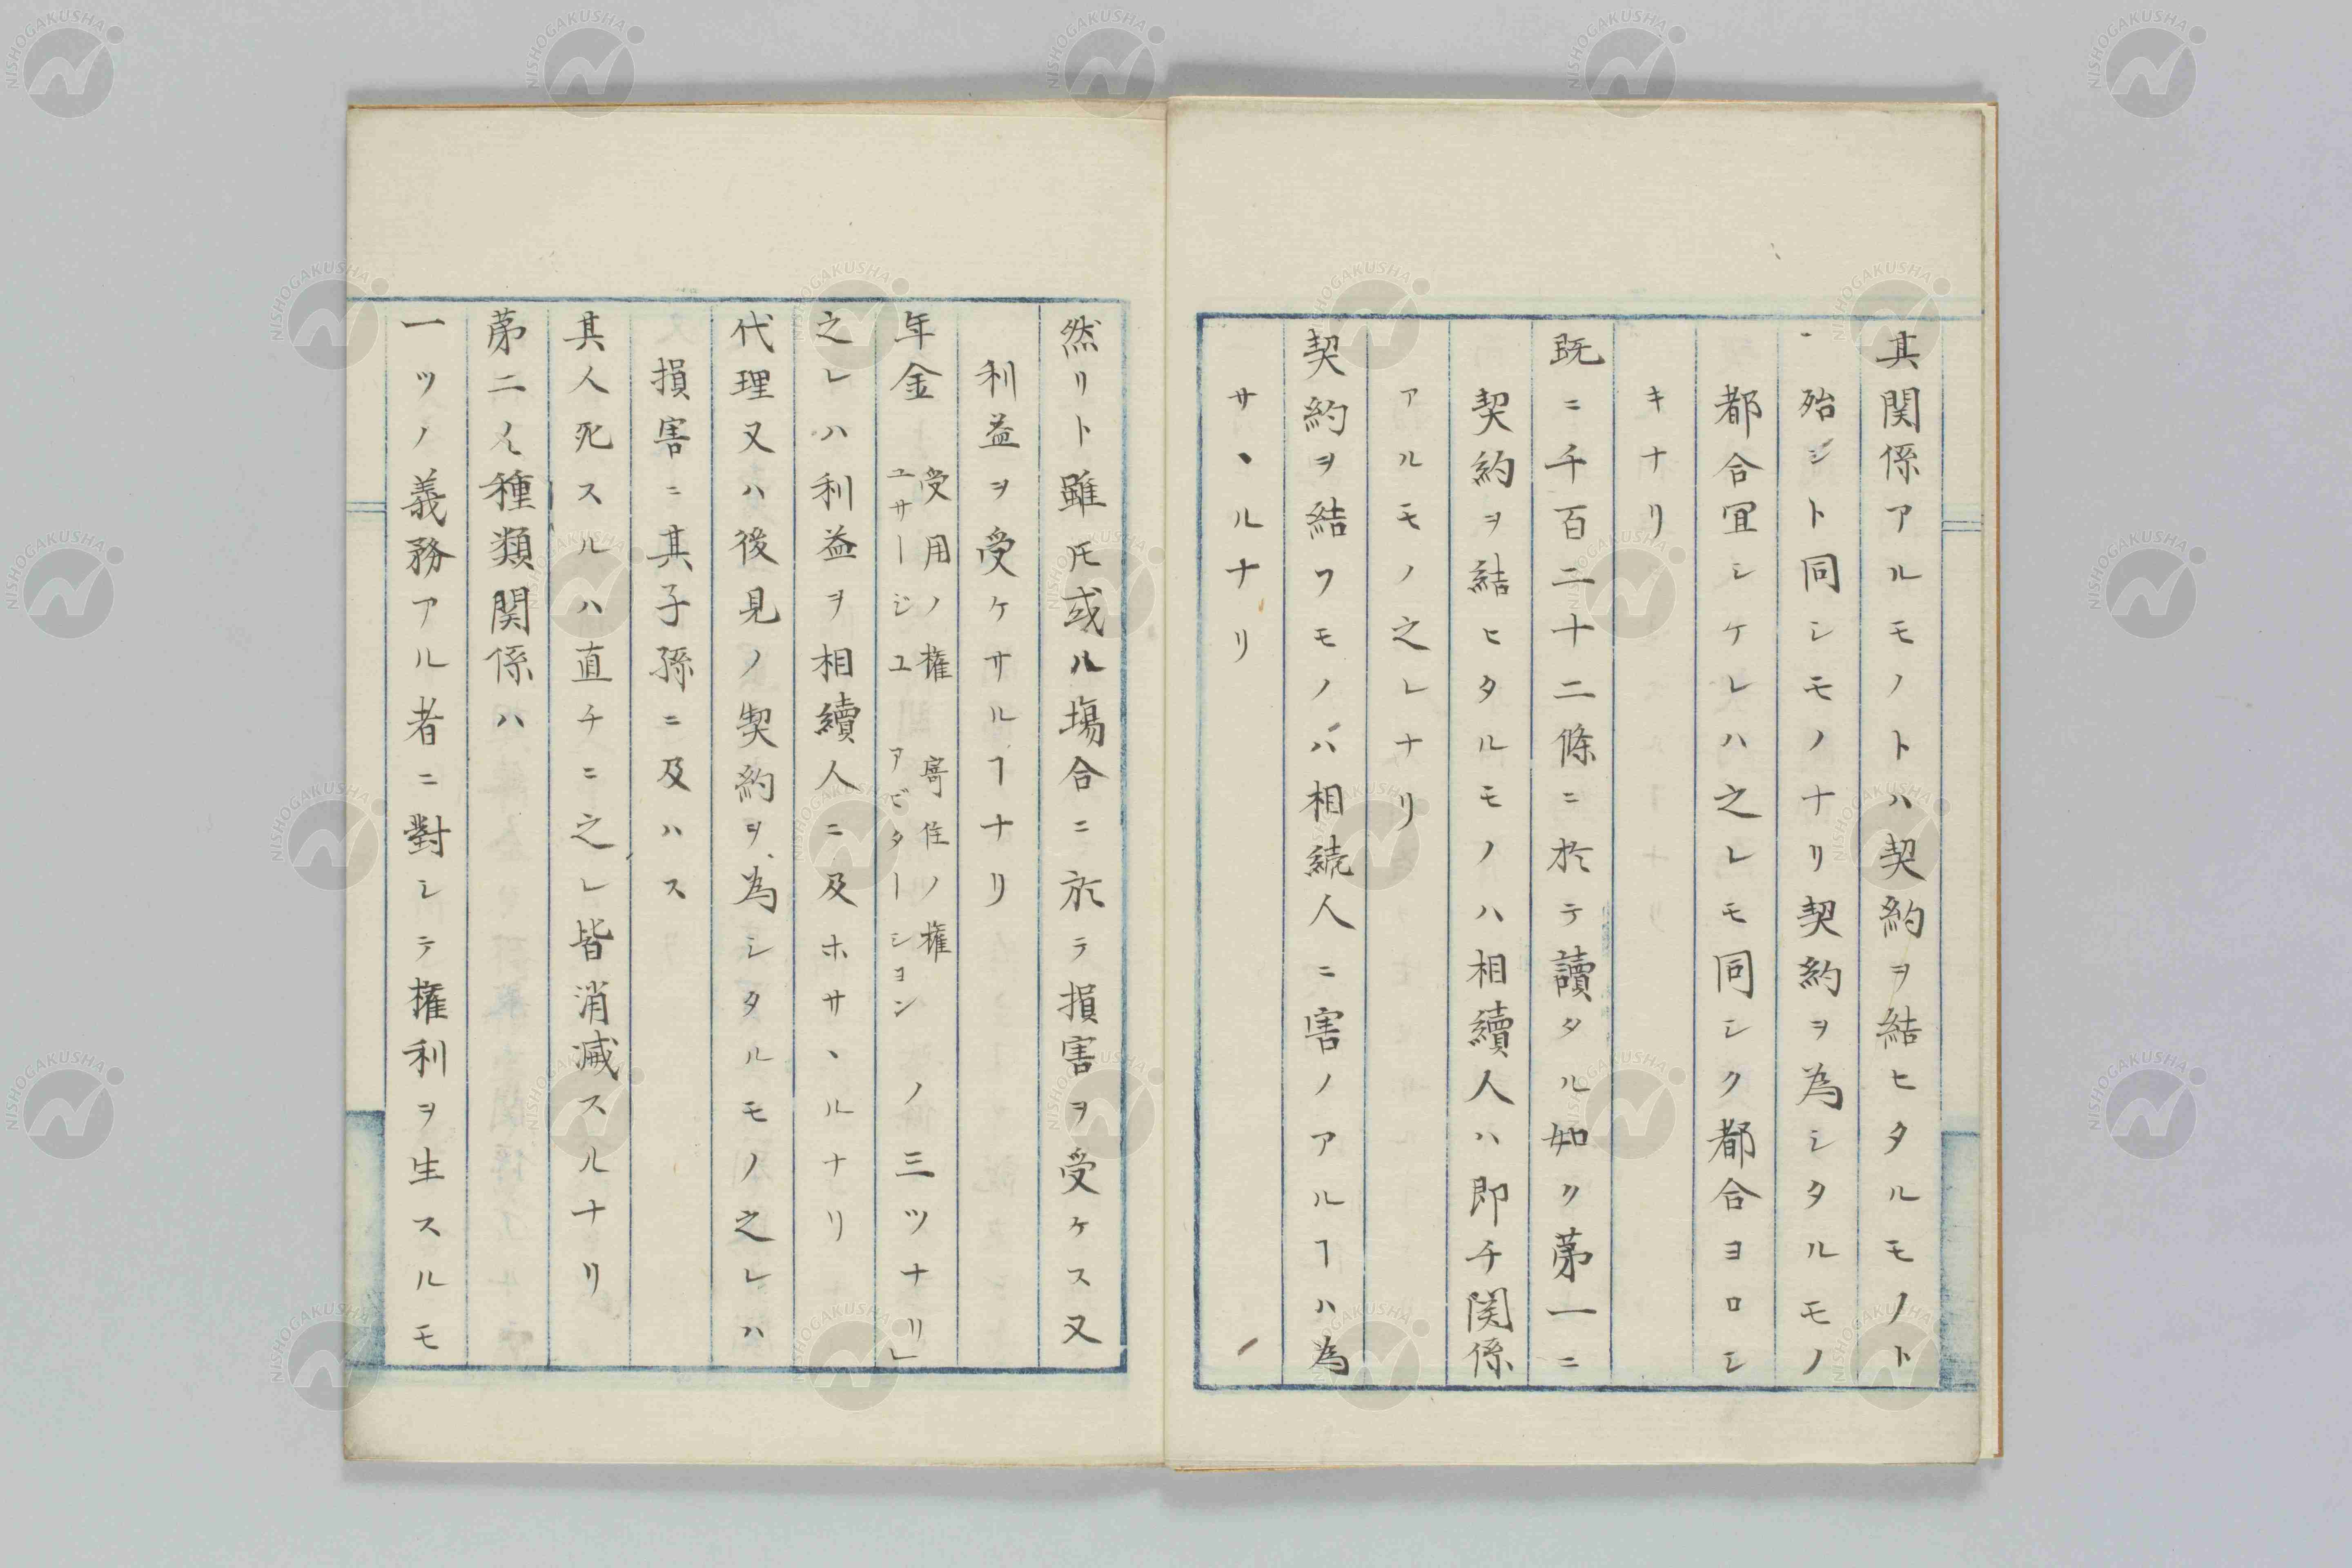 其関係アルモノトハ契約ヲ結ヒタルモノト
殆シト同シモノナリ契約ヲ為シタルモノ
都合冝シケレハ之レモ同シク都合ヨロシ
キナリ
既ニ千百二十二條ニ於テ讀タル如ク苐一ニ
契約ヲ結ヒタルモノハ相續人ハ即チ関係
アルモノ之レナリ
契約ヲ結フモノハ相続人ニ害ノアルヿハ為
サヽルナリ
然リト雖𪜈或ル塲合ニ於テ損害ヲ受ケス又
利益ヲ受ケサルヿナリ
年金 受用ノ権 ユサージユ 寄住ノ権 アビターシヨン ノ三ツナリ」
之レハ利益ヲ相續人ニ及ホサヽルナリ
代理又ハ後見ノ契約ヲ為シタルモノ之レハ
損害ニ其子孫ニ及ハス
其人死スルハ直チニ之レ皆消滅スルナリ
苐二ノ種類関係ハ
一ツノ義務アル者ニ對シテ権利ヲ生スルモ
NISHOGAKUSHA